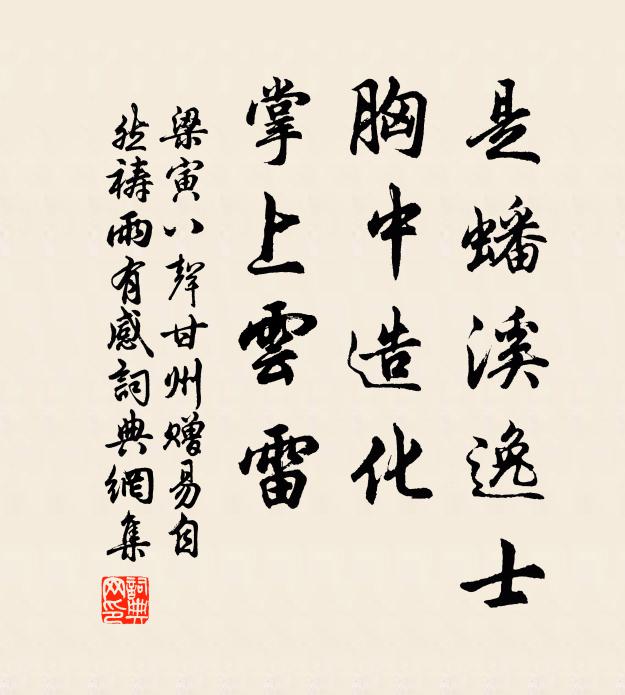 是蟠溪逸士
胸中造化
掌上雲雷
梁寅八聲甘州贈易自
然禱雨有感詞典網集
詞典
网印